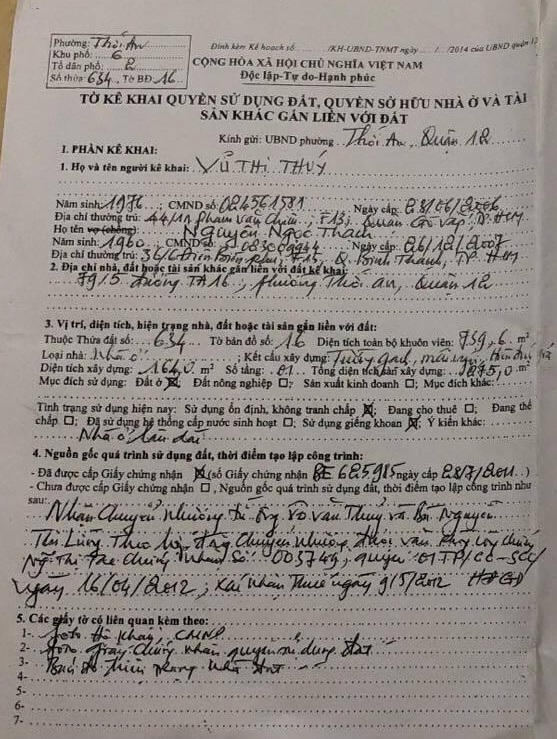 Phường: Thới An
Khu phố: 6
Tổ dân phố: 2
Số thửa 634, Tờ BĐ 16
Đính kèm Kế hoạch số /KH-UBND-TNMT ngày / /2014 của UBND quận 12
CỘNG HÒA XÃ HỘI CHỦ NGHĨA VIỆT NAM
Độc lập-Tự do-Hạnh phúc
TỜ KÊ KHAI QUYỀN SỬ DỤNG ĐẤT, QUYỀN SỞ HỮU NHÀ Ở VÀ TÀI
SẢN KHÁC GẮN LIỀN VỚI ĐẤT
Kính gửi: UBND phường Thới An, Quận 12
I. PHẦN KÊ KHAI:
1. Họ và tên người kê khai: VŨ THỊ THUÝ
Năm sinh: 1976; CMND số: 024561581 Ngày cấp: 23/06/2006
Địa chỉ thường trú: 44/11 Phạm Văn Chiêu, F13, Quận Gò Vấp, TP. HCM
Họ tên vợ (chồng): Nguyễn Ngọc Thạch
Năm sinh: 1960; CMND số: Ngày cấp: 26/12/2007
Địa chỉ thường trú: Điện Biên Phủ, F15, Q. Bình Thạnh, TP. HCM
2. Địa chỉ nhà, đất hoặc tài sản khác gắn liền với đất kê khai:
79/5 đường TA16, phường Thới An, Quận 12
3. Vị trí, diện tích, hiện trạng nhà, đất hoặc tài sản gắn liền với đất:
Thuộc Thửa đất số: 634 Tờ bản đồ số: 16 Diện tích toàn bộ khuôn viên: 759,6 m²
Loại nhà: Nhà ở; Kết cấu xây dựng: Tường gạch, mái
Diện tích xây dựng: 164,0 m² Số tầng: 01 Tổng diện tích sàn xây dựng: m²
Mục đích sử dụng: Đất ở ☒; Đất nông nghiệp ☐; Sản xuất kinh doanh ☐; Mục đích khác:
Tình trạng sử dụng hiện nay: Sử dụng ổn định, không tranh chấp ☒; Đang cho thuê ☐; Đang thế
chấp ☐; Đã sử dụng hệ thống cấp nước sinh hoạt ☐; Sử dụng giếng khoan ☒; Ý kiến khác:
Nhà ở lâu dài
4. Nguồn gốc quá trình sử dụng đất, thời điểm tạo lập công trình:
- Đã được cấp Giấy chứng nhận ☒ (số Giấy chứng nhận BE 625985 ngày cấp 28/7/2011)
- Chưa được cấp Giấy chứng nhận ☐, Nguồn gốc quá trình sử dụng đất, thời điểm tạo lập công trình như
sau:
Nhận chuyển nhượng từ ông Võ Văn Thuỷ và Bà Nguyễn
Thị Lường Theo hợp đồng chuyển nhượng được văn phòng công chứng
chứng nhận số 003744, quyển 01TP/CC-SCC/
ngày 16/04/2012, khai nhận thuế ngày 9/5/2012
5. Các giấy tờ có liên quan kèm theo:
1- foto hộ khẩu, CMND
2- foto giấy chứng nhận quyền sử dụng đất
3- Bản đồ hiện trạng nhà đất
4-
5-
6-
7-